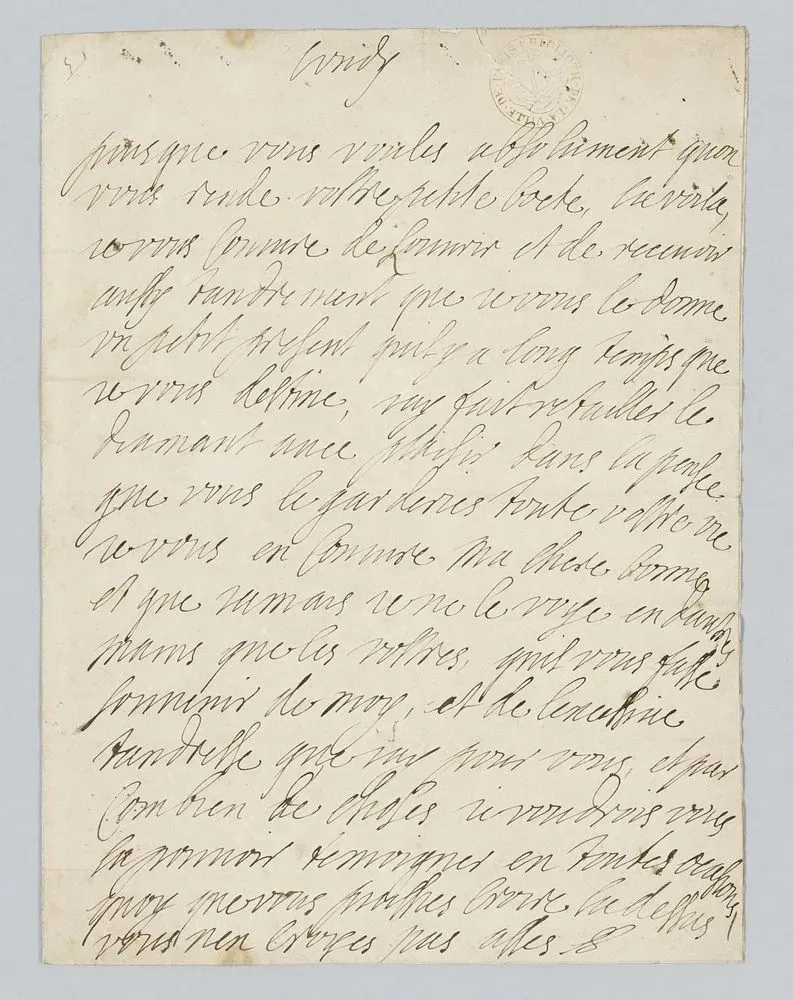 lundy
BIBLIOTH. DE LA VILLE DE PARIS
puisque vous voules absolument quon
vous rende vostre petite boete, la voila,
ie vous coniure de louurir et de receuoir
aussy tandrement que ie vous le donne
vn petit present quil y a long temps que
ie vous destine, iay fait retailler le
diamant auec plaisir dans la pensee
que vous le garderies toute vostre vie
ie vous en coniure ma chere bonne
et que iamais ie ne le voye en dautres
mains que les vostres, quil vous fasse
souuenir de moy, et de lexcessiue
tandresse que iay pour vous, et par
combien de choses ie voudrois vous
la pouuoir temoigner en toutes ocasions,
quoy que vous puissies croire la dessus
vous nen croyes pas asses